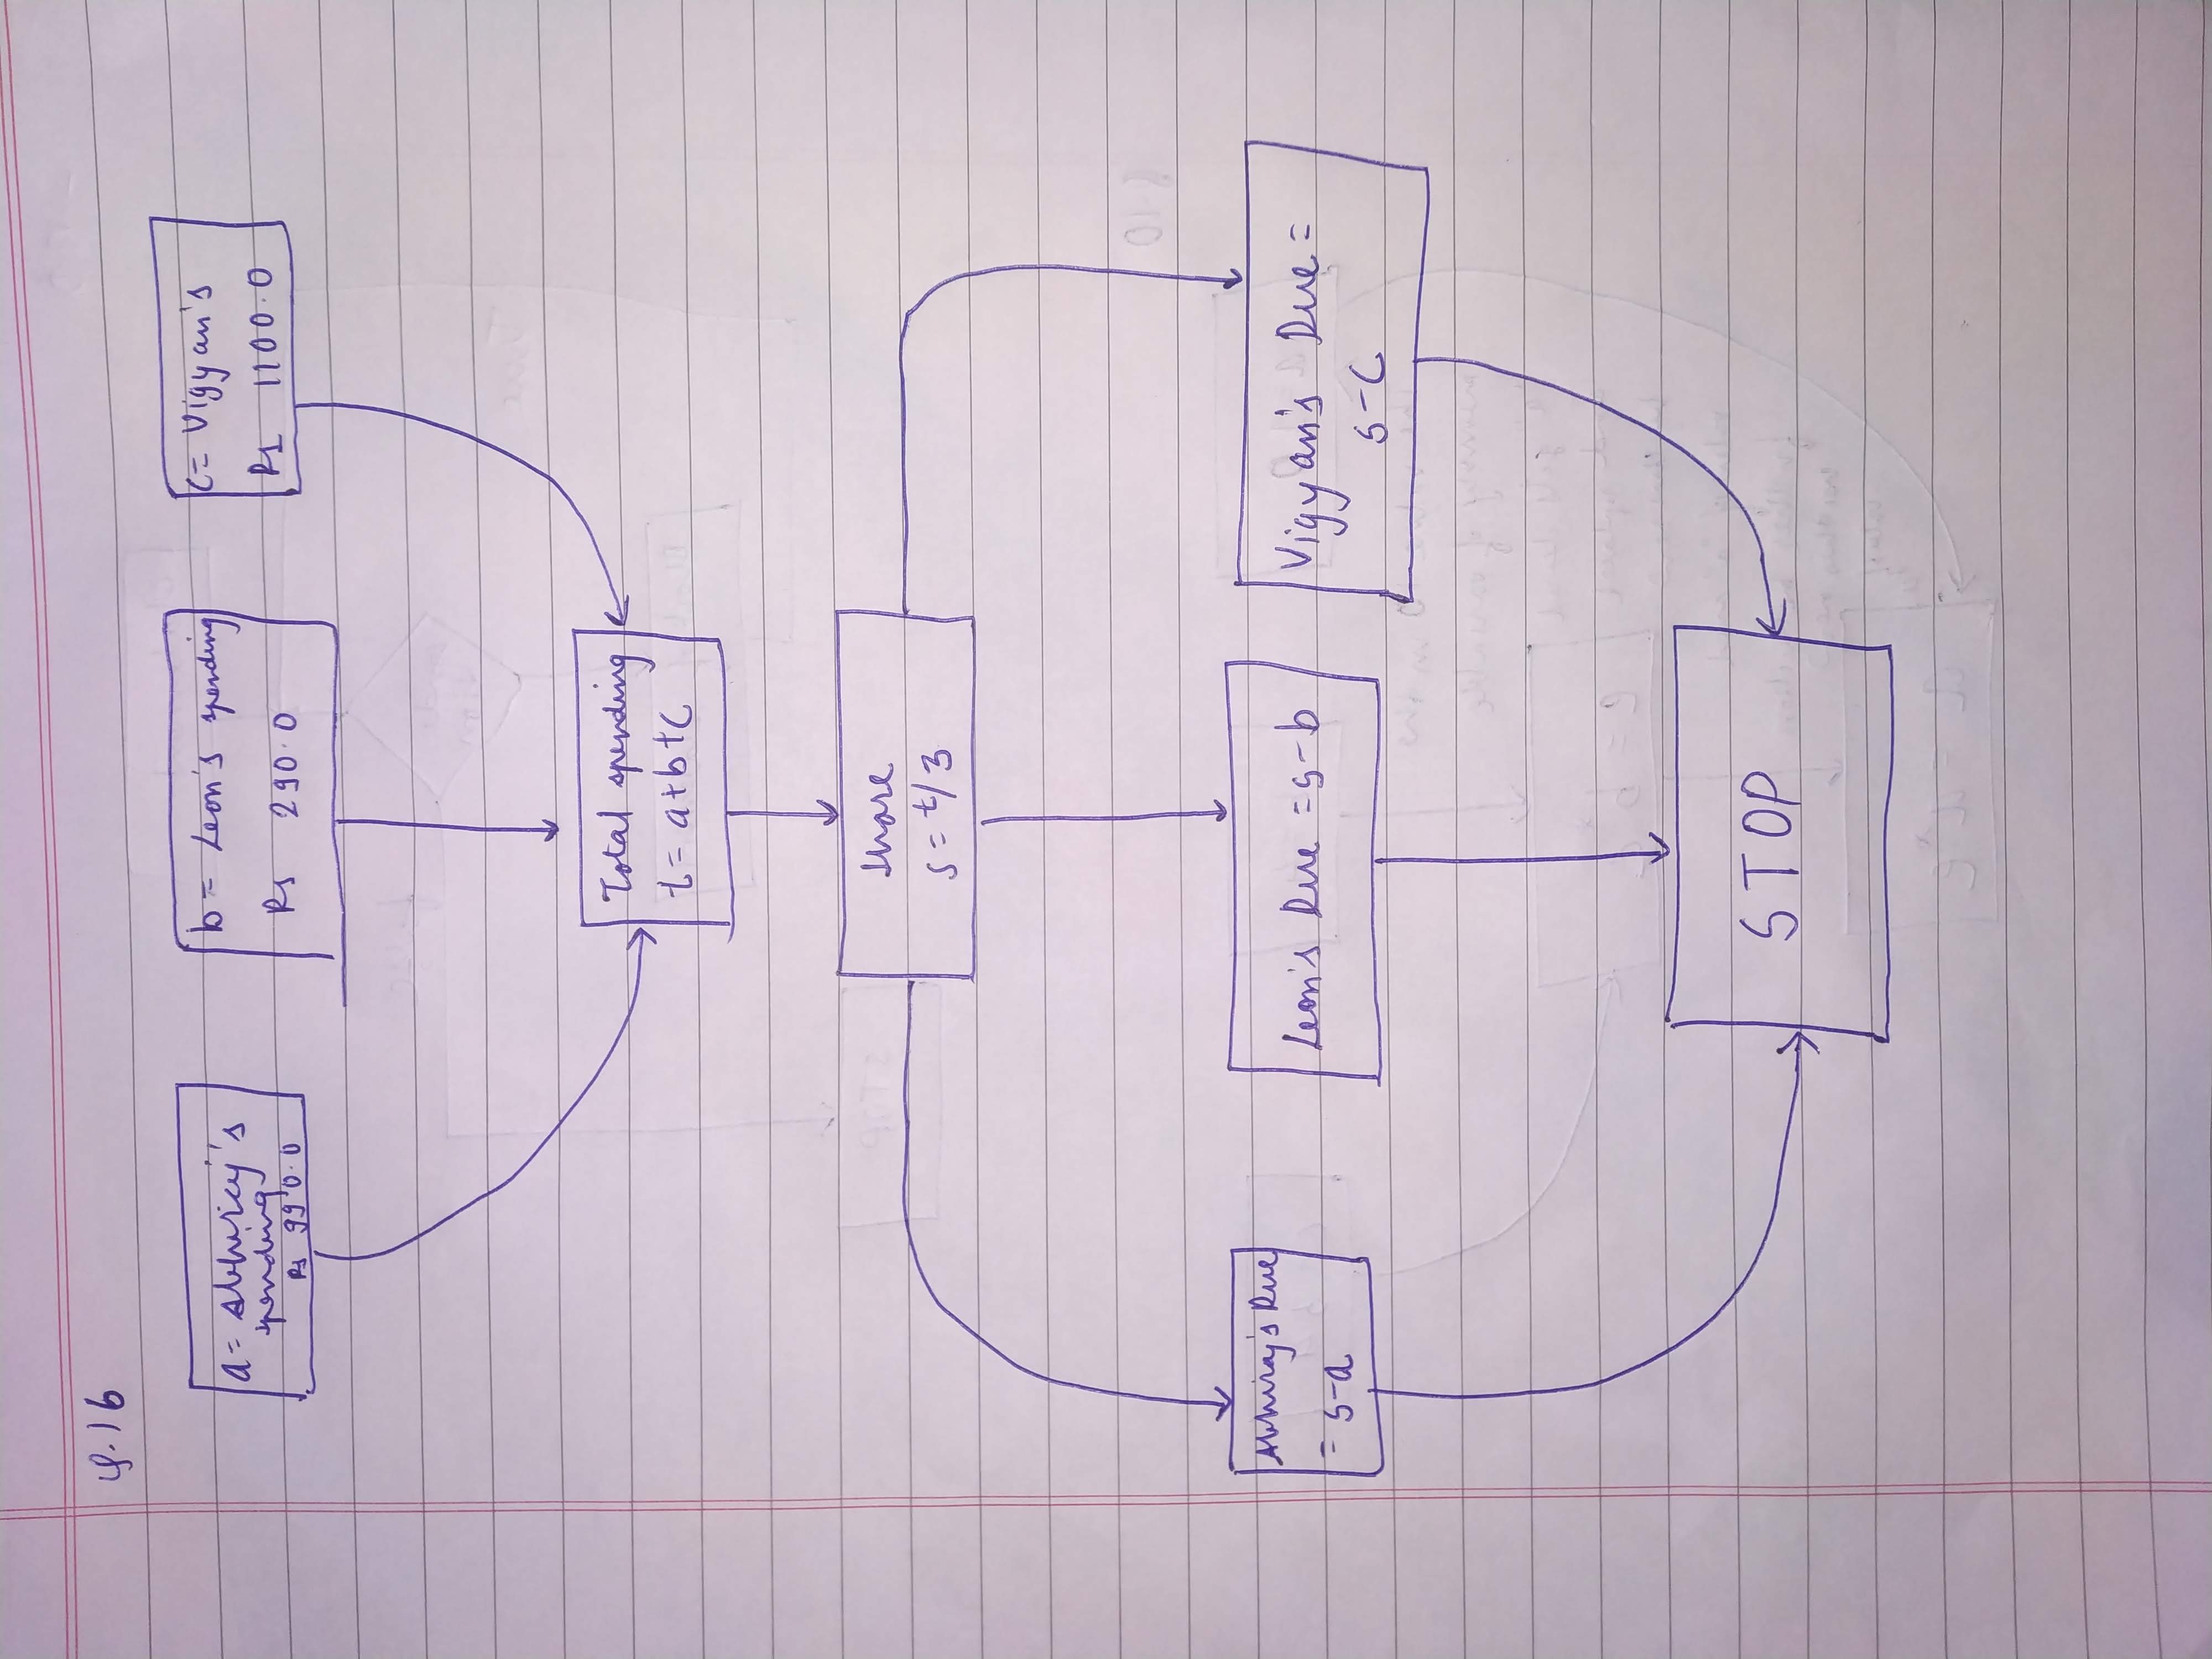 φ.16
a= Abhiraj's
spending
Rs 990.0
b= Leon's spending
Rs 290.0
c= Vigyan's
Rs 1100.0
Total spending
t= a+b+c
Share
s= t/3
Abhiraj's Due
= s-a
Leon's Due = s-b
Vigyan's Due =
s-c
STOP